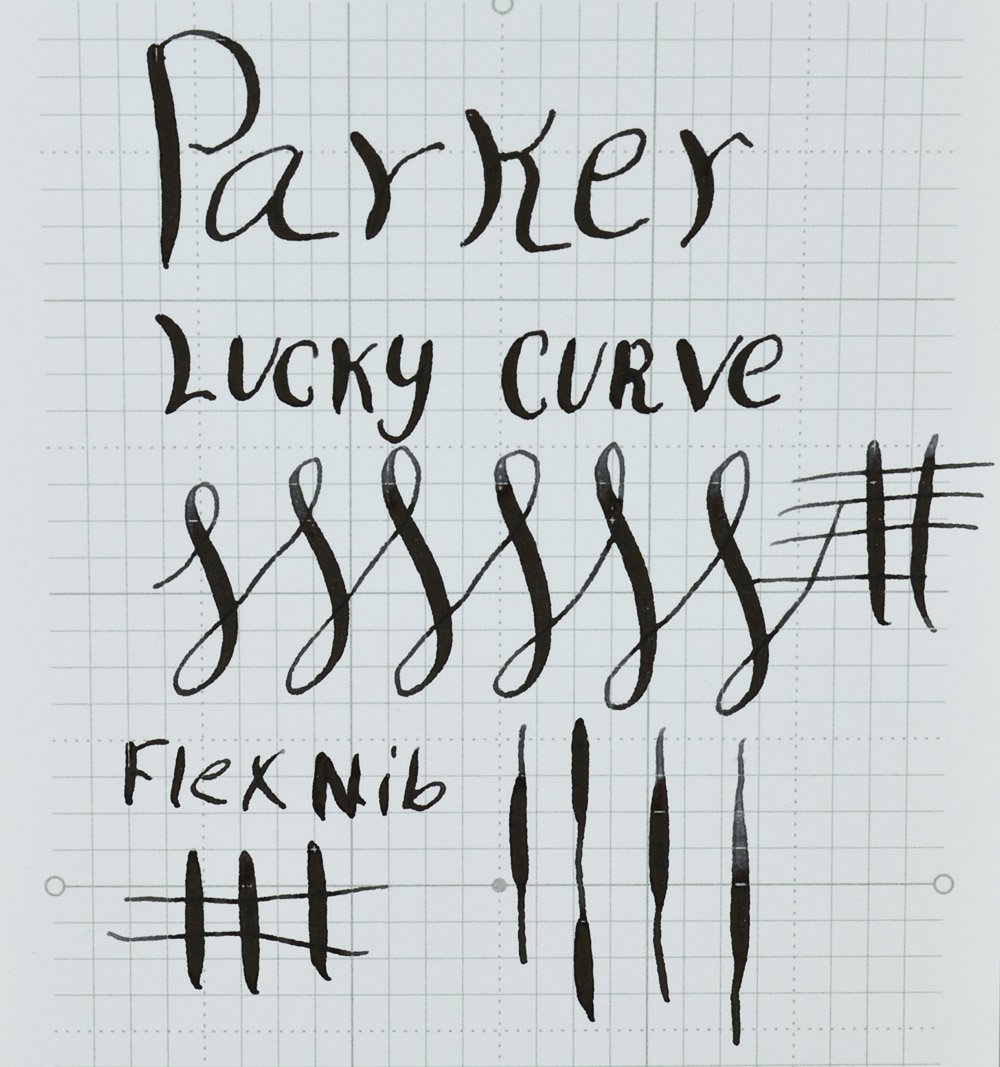 Parker
LUCKY CURVE
Flex Nib